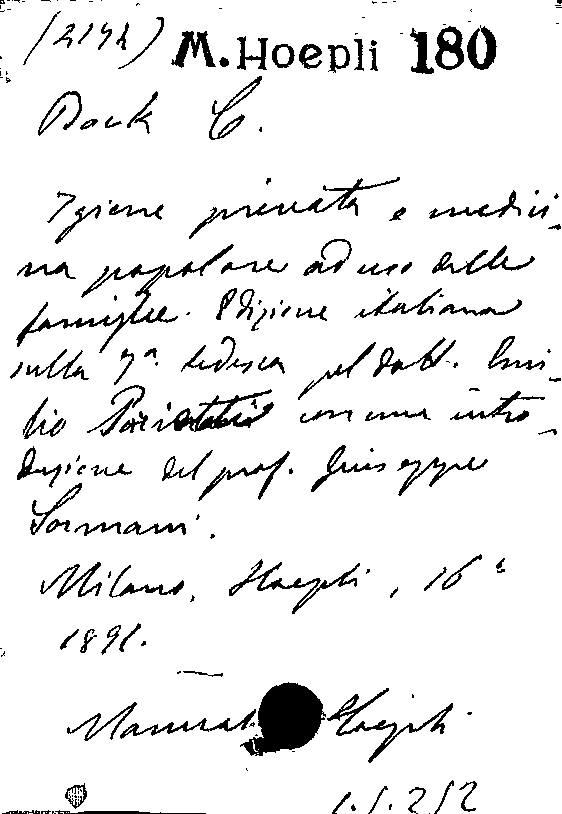 (2142) M. Hoepli 180
Bock C.
Igiene privata e medici-
na popolare ad uso delle
famiglie. Edizione italiana
sulla 7ª. tedesca pel dott. Emi-
lio Parietti con una intro-
duzione del prof. Giuseppe
Sormani.
Milano, Hoepli, 16°
1891.
Manuali Hoepli
1.5.252